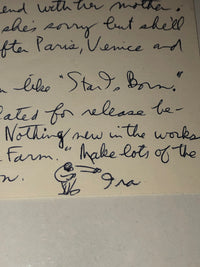 end with her mother.
she's sorry but she'll
fter Paris, Venice and
n like "Star Is Born."
ated for release be-
Nothing new in the works
Farm." Make lots of the
n.
Ira